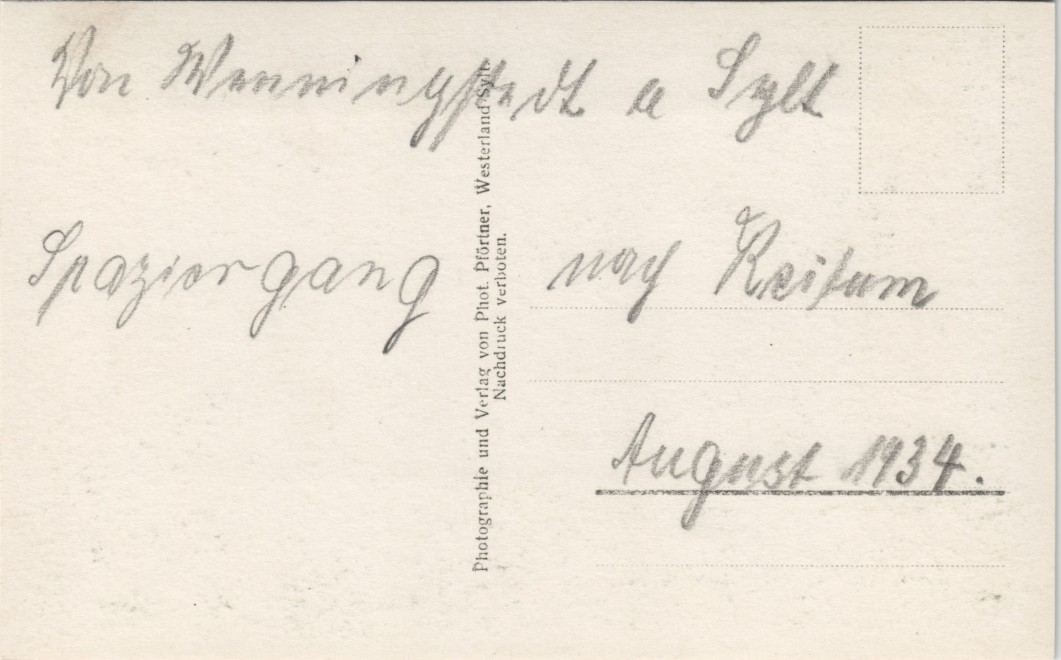 Von Wenningstedt a Sylt
Spaziergang nach Keitum
August 1934.
Photographie und Verlag von Phot. Pförtner, Westerland Sylt
Nachdruck verboten.